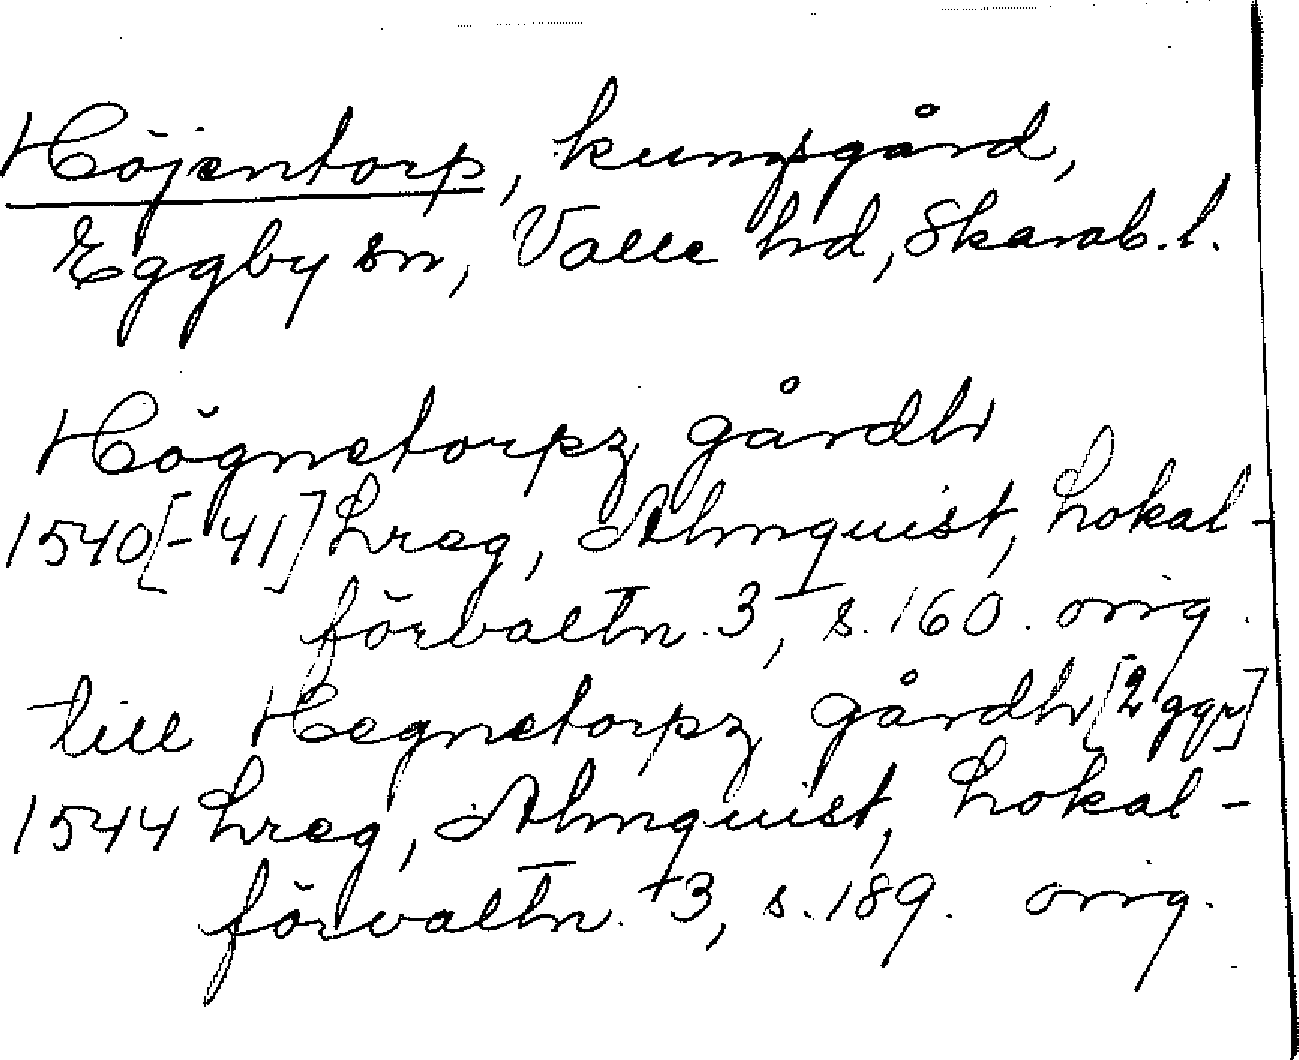 Höjentorp, kungsgård,
Eggby sn, Valle hd, Skarab. l.
Högnetorpz gårdh
1540[-41] Lreg, Almquist, Lokal-
förvaltn. 3, s. 160. orig.
till Hegnetorpz gårdh [2 ggr]
1544 Lreg, Almquist, Lokal-
förvaltn. 3, s. 189. orig.